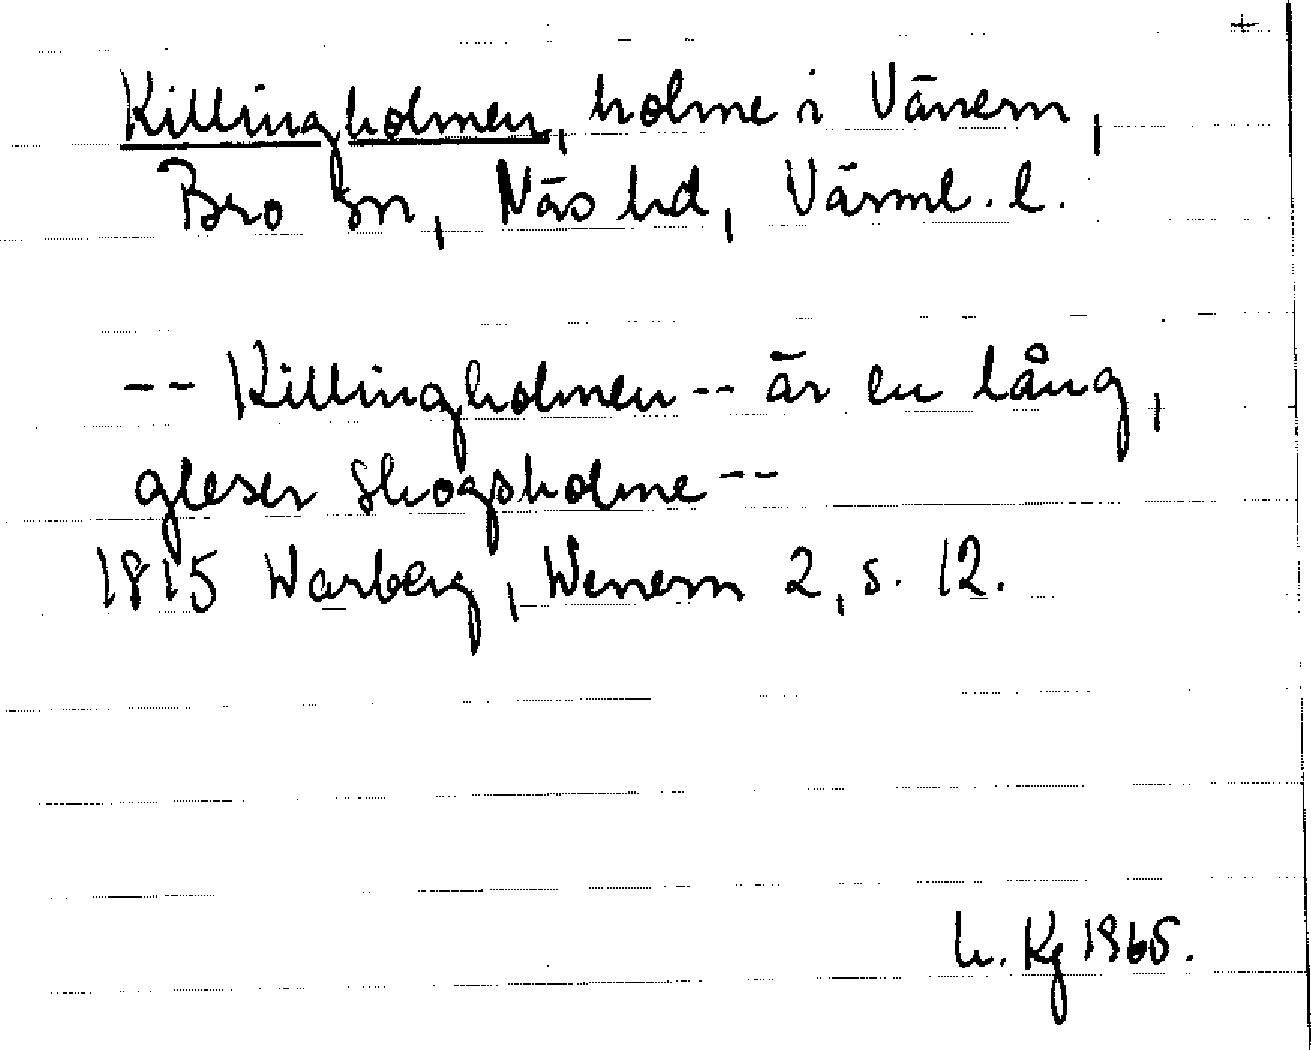 +
Killingholmen, holme i Vänern,
Bro sn, Näs hd, Värml. l.
-- Killingholmen -- är en lång,
gleser skogsholme --
1815 Warberg, Wenern 2, s. 12.
h. Kg 1965.